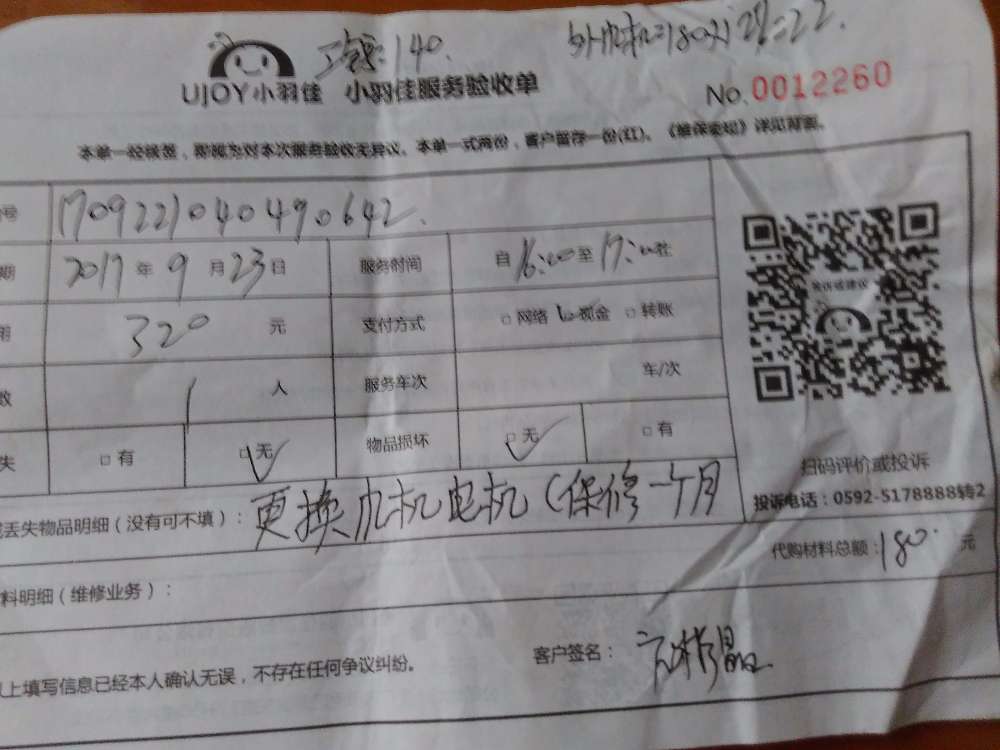 140.
UJOY小羽佳 小羽佳服务验收单
No. 0012260
本单一经签，即视为对本次服务验收无异议。本单一式两份，客户留存一份(红)。《维保须知》详见背面。
号 1709221040490642
期 2017年9月23日 服务时间 自16:00至17:00
320元 支付方式 □网络 现金 □转账
数 1人 服务车次 车/次
失 □有 □无 物品损坏 □无 □有
扫码评价或投诉
投诉电话：0592-5178888转2
丢失物品明细（没有可不填）： 更换 机电机（保修一个月
代购材料总额：180元
料明细（维修业务）：
上填写信息已经本人确认无误，不存在任何争议纠纷。
客户签名：